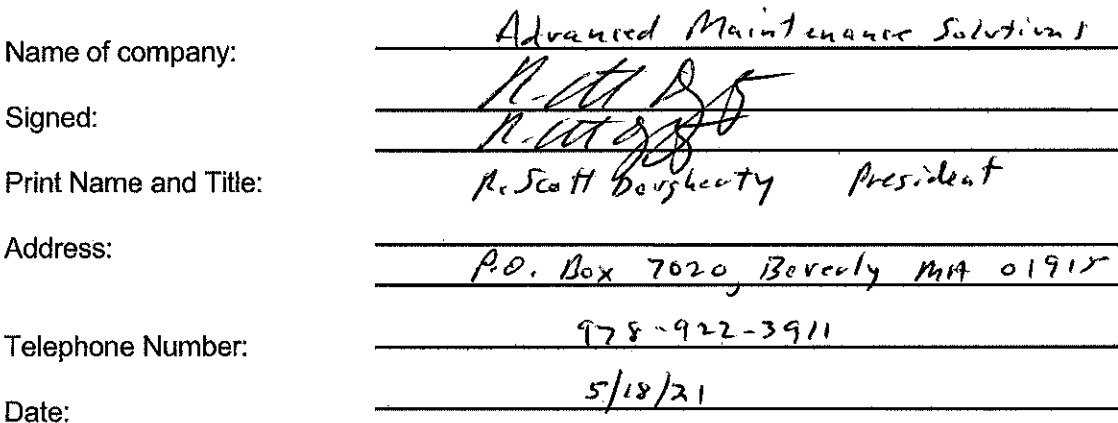 Name of company: Advanced Maintenance Solutions
Signed:
Print Name and Title: R. Scott Dougherty President
Address:
P.O. Box 7020, Beverly MA 01915
Telephone Number: 978-922-3911
Date: 5/18/21